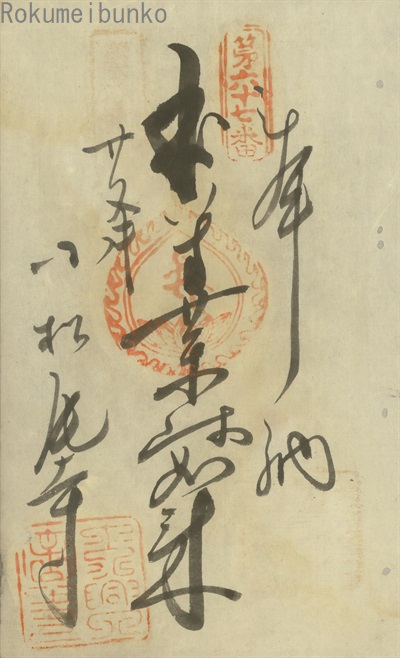 Rokumeibunko
第六十七番
奉納
本尊薬師如来
小松尾寺